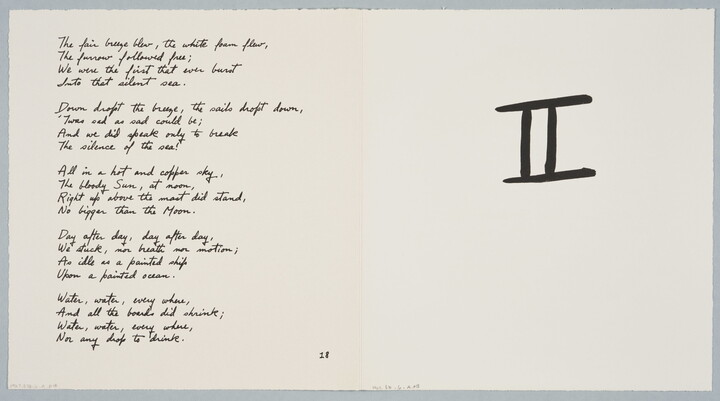 The fair breeze blew, the white foam flew,
The furrow followed free;
We were the first that ever burst
Into that silent sea.
Down dropt the breeze, the sails dropt down,
'Twas sad as sad could be;
And we did speak only to break
The silence of the sea!
All in a hot and copper sky,
The bloody Sun, at noon,
Right up above the mast did stand,
No bigger than the Moon.
Day after day, day after day,
We stuck, nor breath nor motion;
As idle as a painted ship
Upon a painted ocean.
Water, water, every where,
And all the boards did shrink;
Water, water, every where,
Nor any drop to drink.
18
II